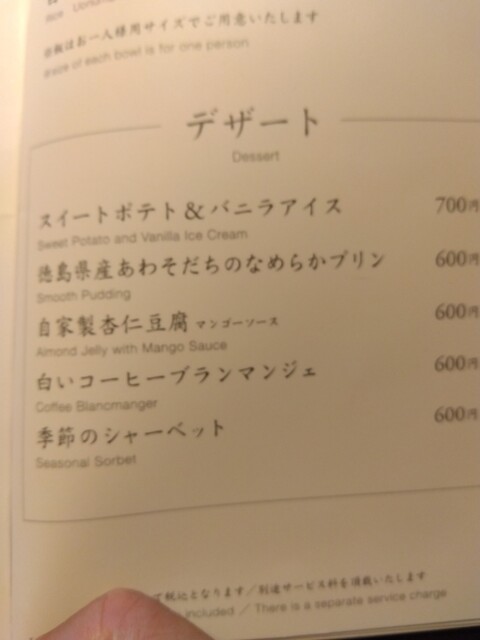 はお一人様用サイズでご用意いたします
size of each bowl is for one person
デザート
Dessert
スイートポテト&バニラアイス 700円
Sweet Potato and Vanilla Ice Cream
徳島県産あわそだちのなめらかプリン 600円
Smooth Pudding
自家製杏仁豆腐 マンゴーソース 600円
Almond Jelly with Mango Sauce
白いコーヒーブランマンジェ 600円
Coffee Blancmanger
季節のシャーベット 600円
Seasonal Sorbet
て税込となります/別途サービス料を頂戴いたします
included / There is a separate service charge